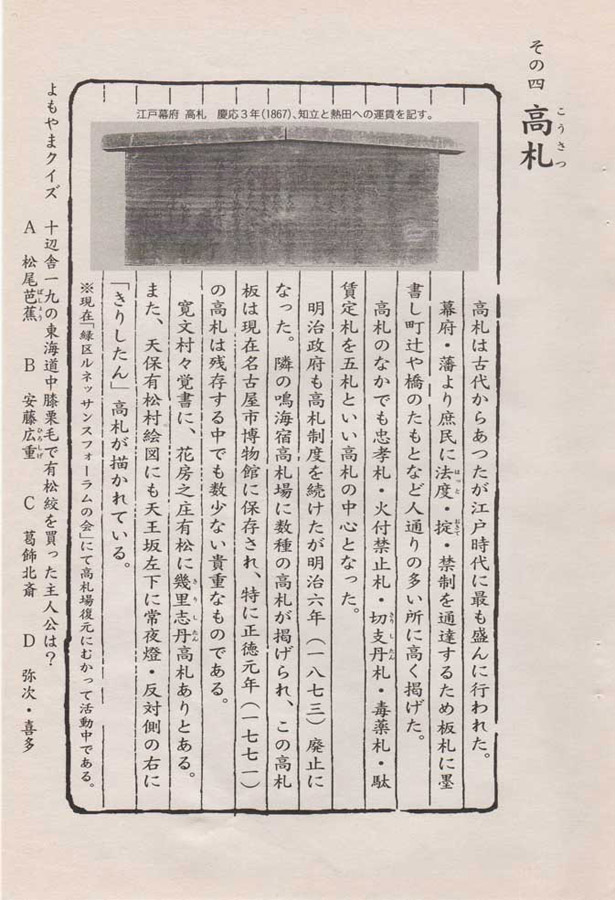 その四 高札
こうさつ
江戸幕府 高札 慶応3年(1867)、知立と熱田への運賃を記す。
高札は古代からあつたが江戸時代に最も盛んに行われた。
幕府・藩より庶民に法度・掟・禁制を通達するため板札に墨
はっと おきて
書し町辻や橋のたもとなど人通りの多い所に高く掲げた。
高札のなかでも忠孝札・火付禁止札・切支丹札・毒薬札・駄
きりしたん
賃定札を五札といい高札の中心となった。
明治政府も高札制度を続けたが明治六年(一八七三)廃止に
なった。隣の鳴海宿高札場に数種の高札が掲げられ、この高札
板は現在名古屋市博物館に保存され、特に正徳元年(一七七一)
の高札は残存する中でも数少ない貴重なものである。
寛文村々覚書に、花房之庄有松に幾里志丹高札ありとある。
きりしたん
また、天保有松村絵図にも天王坂左下に常夜燈・反対側の右に
「きりしたん」高札が描かれている。
※現在「緑区ルネッサンスフォーラムの会」にて高札場復元にむかって活動中である。
よもやまクイズ 十辺舎一九の東海道中膝栗毛で有松絞を買った主人公は?
A 松尾芭蕉 B 安藤広重 C 葛飾北斎 D 弥次・喜多
ばしょう ひろしげ